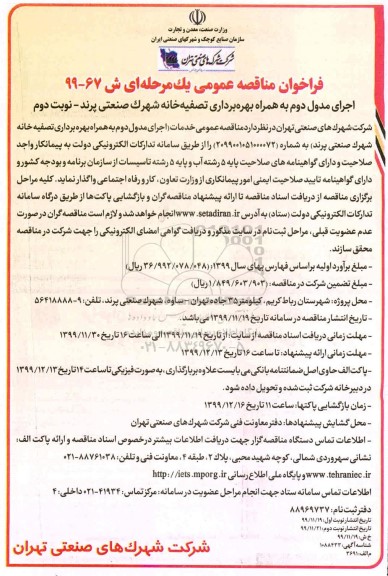 وزارت صنعت، معدن و تجارت
سازمان صنایع کوچک و شهرکهای صنعتی ایران
شرکت شهرک های صنعتی تهران
فراخوان مناقصه عمومی یک مرحله ای ش ۶۷-۹۹
اجرای مدول دوم به همراه بهره برداری تصفیه خانه شهرک صنعتی پرند - نوبت دوم
شرکت شهرک های صنعتی تهران در نظر دارد مناقصه عمومی خدمات (اجرای مدول دوم به همراه بهره برداری تصفیه خانه
شهرک صنعتی پرند) به شماره (۲۰۹۹۰۰۱۰۵۱۰۰۰۰۷۲) را از طریق سامانه تدارکات الکترونیکی دولت به پیمانکار واجد
صلاحیت و دارای گواهینامه های صلاحیت پایه ۵ رشته آب و پایه ۵ رشته تاسیسات از سازمان برنامه و بودجه کشور و
دارای گواهینامه تایید صلاحیت ایمنی امور پیمانکاری از وزارت تعاون، کار و رفاه اجتماعی واگذار نماید. کلیه مراحل
برگزاری مناقصه از دریافت اسناد مناقصه تا ارائه پیشنهاد مناقصه گران و بازگشایی پاکت‌ها از طریق درگاه سامانه
تدارکات الکترونیکی دولت (ستاد) به آدرس www.setadiran.ir انجام خواهد شد و لازم است مناقصه گران در صورت
عدم عضویت قبلی، مراحل ثبت نام در سایت مذکور و دریافت گواهی امضای الکترونیکی را جهت شرکت در مناقصه
محقق سازند.
- مبلغ برآورد اولیه براساس فهارس بهای سال ۱۳۹۹: (۳۶/۹۹۲/۰۷۸/۰۴۸ ریال)
- مبلغ تضمین شرکت در مناقصه: (۱/۸۴۹/۶۰۳/۹۰۳ ریال)
- محل پروژه: شهرستان رباط کریم. کیلومتر ۳۵ جاده تهران - ساوه، شهرک صنعتی پرند. تلفن: ۹-۵۶۴۱۸۸۸۸
- تاریخ انتشار مناقصه در سامانه تاریخ ۱۳۹۹/۱۱/۱۹ می باشد.
- مهلت زمانی دریافت اسناد مناقصه از سایت: از تاریخ ۱۳۹۹/۱۱/۱۹ الی ساعت ۱۶ تاریخ ۱۳۹۹/۱۱/۳۰
- مهلت زمانی ارائه پیشنهاد: تا ساعت ۱۶ تاریخ ۱۳۹۹/۱۲/۱۳
- پاکت الف حاوی اصل ضمانتنامه بانکی می بایست علاوه بر بارگذاری، به صورت فیزیکی تا ساعت ۱۴ تاریخ ۱۳۹۹/۱۲/۱۳
در دبیرخانه شرکت ثبت شده و تحویل داده شود.
- زمان بازگشایی پاکتها: ساعت ۱۱ تاریخ ۱۳۹۹/۱۲/۱۶
- محل گشایش پیشنهادها: دفتر معاونت فنی شرکت شهرک های صنعتی تهران
- اطلاعات تماس دستگاه مناقصه گزار جهت دریافت اطلاعات بیشتر در خصوص اسناد مناقصه و ارائه پاکت الف:
نشانی سهروردی شمالی، کوچه شهید محبی، پلاک ۲، طبقه ۴، معاونت فنی و تلفن: ۰۲۱-۸۸۷۶۱۰۳۸
www.tehraniec.ir و پایگاه ملی اطلاع رسانی http://iets.mporg.ir
اطلاعات تماس سامانه ستاد جهت انجام مراحل عضویت در سامانه: مرکز تماس: ۴۱۹۳۴-۰۲۱ داخلی: ۴
دفتر ثبت نام: ۸۸۹۶۹۷۳۷
تاریخ انتشار نوبت اول: ۹۹/۱۱/۱۹
تاریخ انتشار نوبت دوم: ۹۹/۱۱/۲۱
خ ش ۹۹/۱۱/۱۹
شناسه آگهی: ۱۰۸۸۴۳۳
م الف: ۳۶۹۱
شرکت شهرک های صنعتی تهران